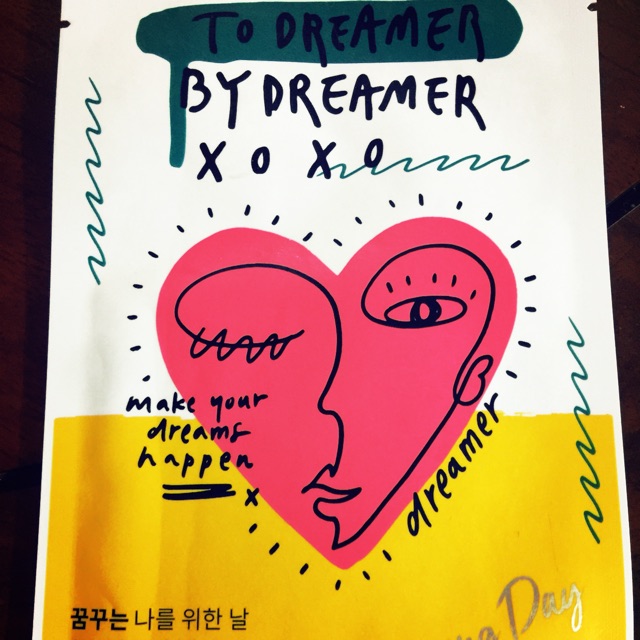 TO DREAMER
BY DREAMER
X O X O
make your
dreams
happen
x
dreamer
꿈꾸는 나를 위한 날
Day